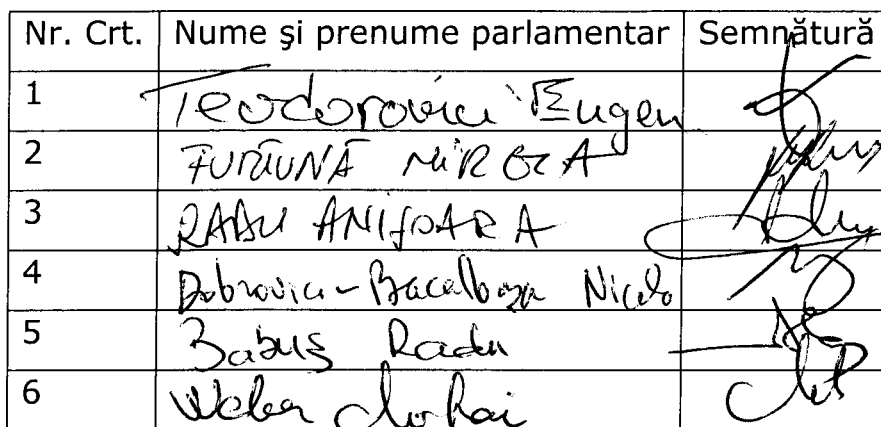 Nr. Crt. Nume şi prenume parlamentar Semnătură
1 Teodorovici Eugen
2 FURTUNĂ MIRCEA
3 RADU ANIŞOARA
4 Dobrovici-Bacalbaşa Nicolae
5 Babuş Radu
6 Weber Mihai